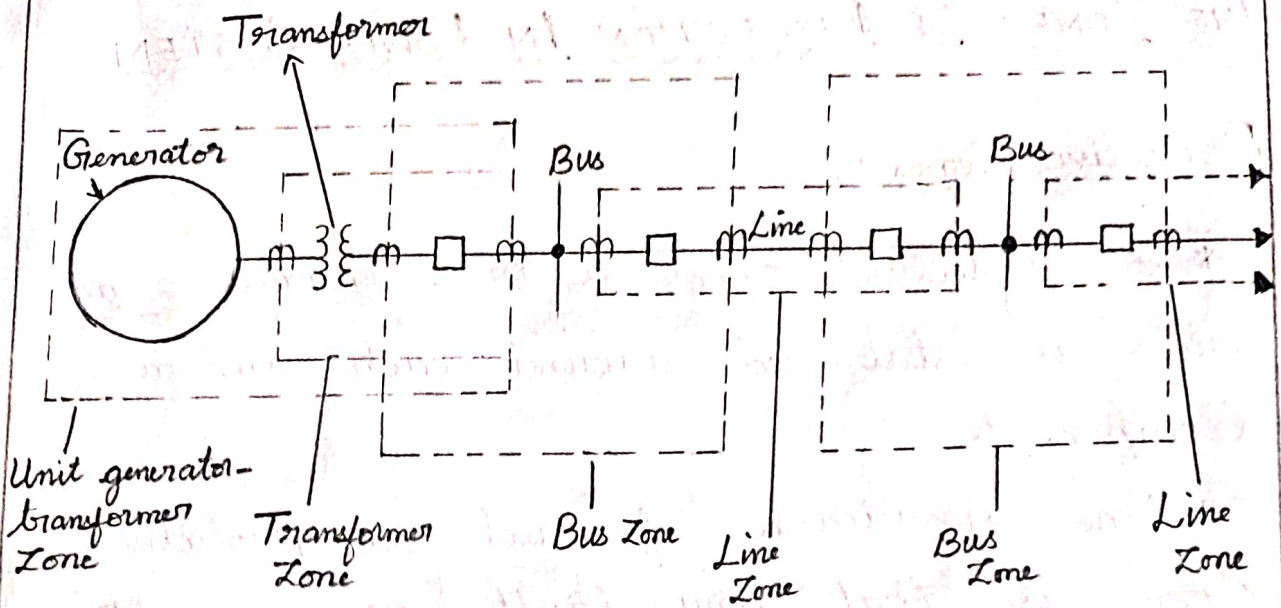 Transformer
Generator
Bus
Bus
Line
Unit generator-
transformer
Zone
Transformer
Zone
Bus Zone
Line
Zone
Bus
Zone
Line
Zone